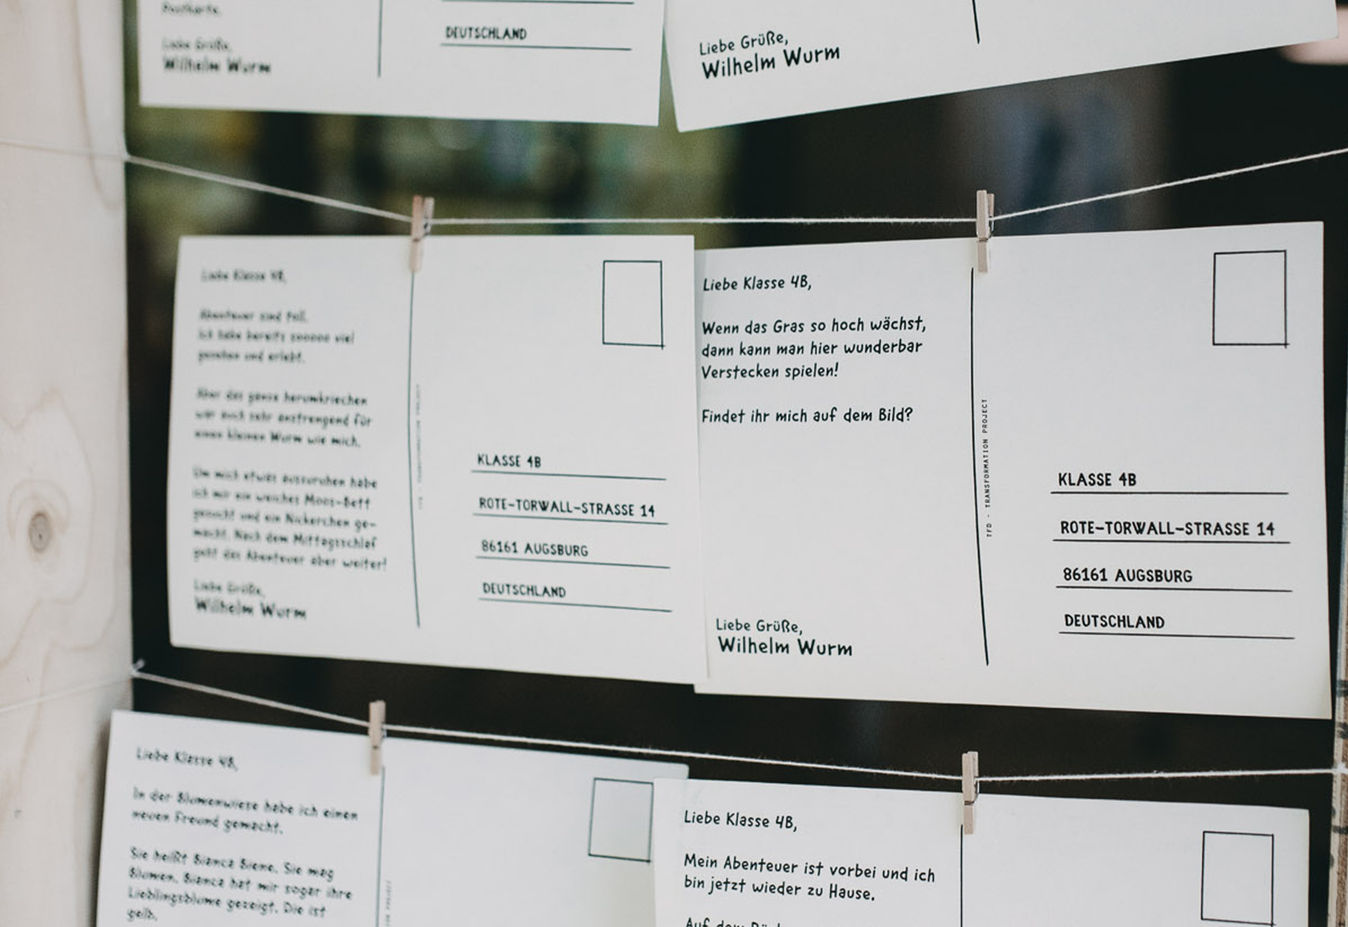 Postkarte.
Liebe Grüße,
Wilhelm Wurm
DEUTSCHLAND
Liebe Grüße,
Wilhelm Wurm
Liebe Klasse 4B,
Abenteuer sind toll.
Ich habe bereits sooooo viel
gesehen und erlebt.
Aber das ganze herumkriechen
war auch sehr anstrengend für
einen kleinen Wurm wie mich.
Um mich etwas auszuruhen habe
ich mir ein weiches Moos-Bett
gesucht und ein Nickerchen ge-
macht. Nach dem Mittagsschlaf
geht das Abenteuer aber weiter!
Liebe Grüße,
Wilhelm Wurm
TFD - TRANSFORMATION PROJECT
KLASSE 4B
ROTE-TORWALL-STRASSE 14
86161 AUGSBURG
DEUTSCHLAND
Liebe Klasse 4B,
Wenn das Gras so hoch wächst,
dann kann man hier wunderbar
Verstecken spielen!
Findet ihr mich auf dem Bild?
Liebe Grüße,
Wilhelm Wurm
TFD - TRANSFORMATION PROJECT
KLASSE 4B
ROTE-TORWALL-STRASSE 14
86161 AUGSBURG
DEUTSCHLAND
Liebe Klasse 4B,
In der Blumenwiese habe ich einen
neuen Freund gemacht.
Sie heißt Bianca Biene. Sie mag
Blumen. Bianca hat mir sogar ihre
Lieblingsblume gezeigt. Die ist
gelb.
PROJECT
Liebe Klasse 4B,
Mein Abenteuer ist vorbei und ich
bin jetzt wieder zu Hause.
Auf dem